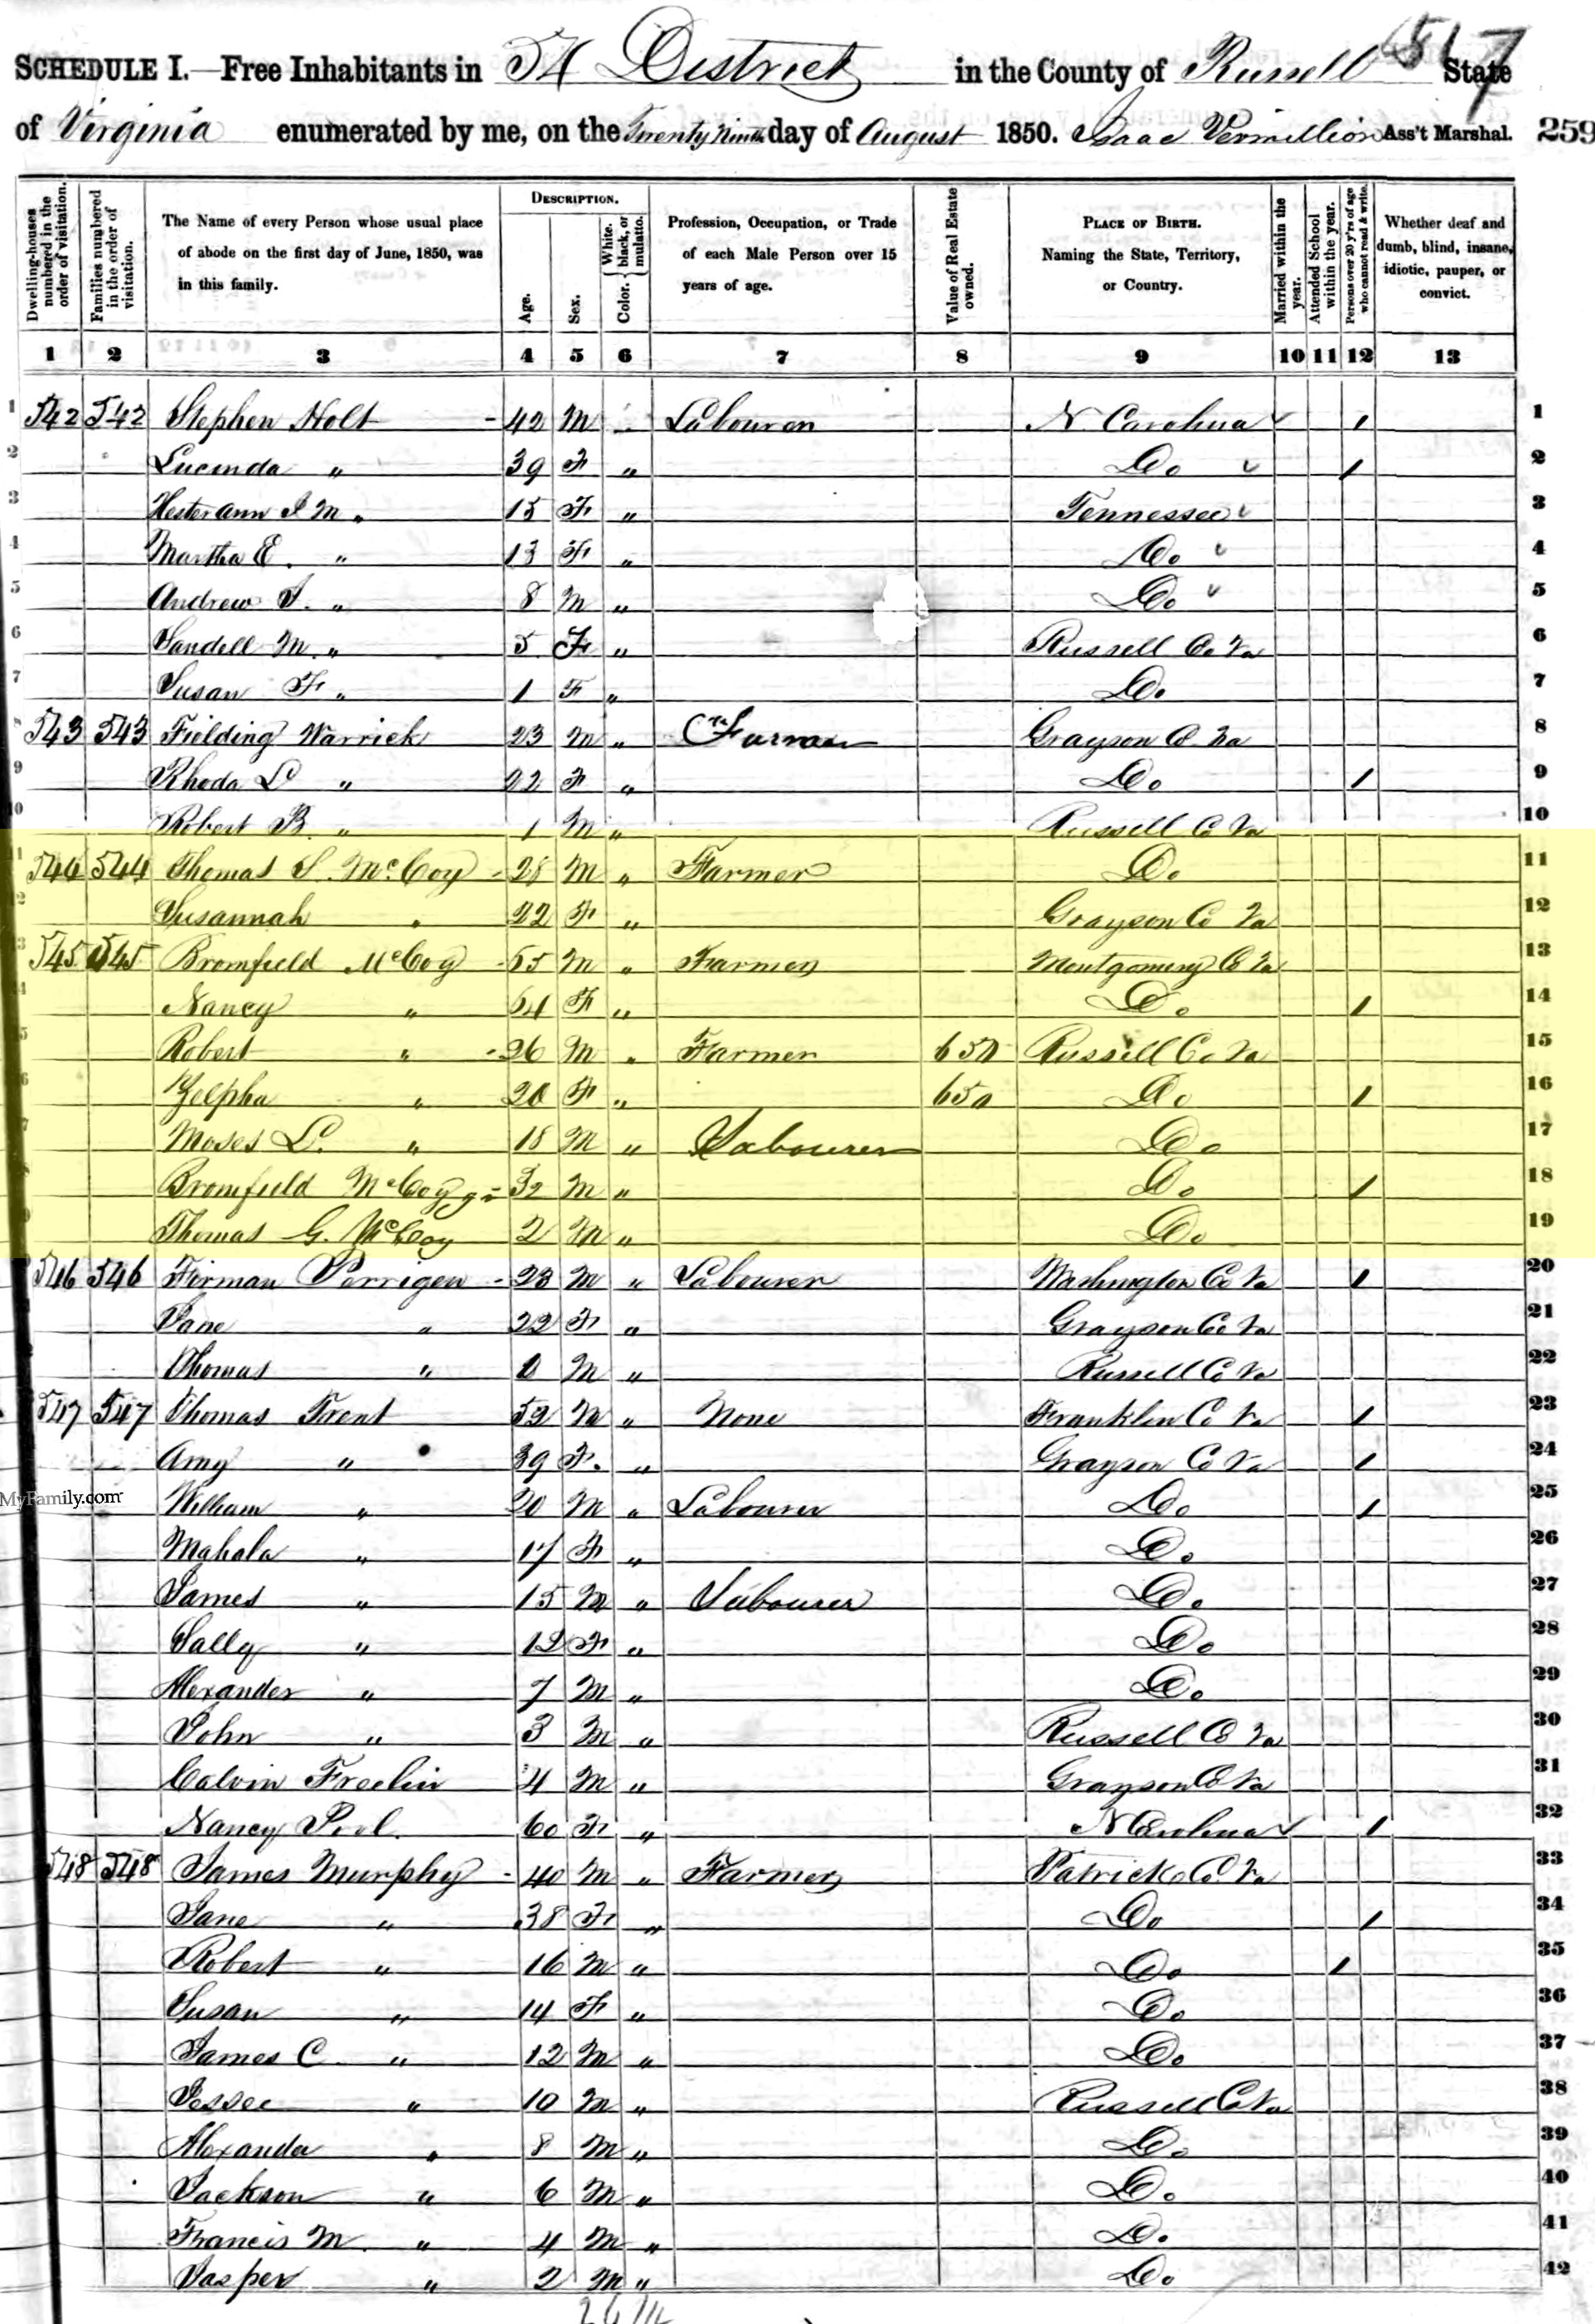 517
SCHEDULE I.—Free Inhabitants in 54 District in the County of Russell State
of Virginia enumerated by me, on the Twenty Ninth day of August 1850. Isaac Vermillion Ass't Marshal. 259
Dwelling-houses numbered in the order of visitation.
Families numbered in the order of visitation.
The Name of every Person whose usual place of abode on the first day of June, 1850, was in this family.
DESCRIPTION.
Age.
Sex.
Color. { White, black, or mulatto.
Profession, Occupation, or Trade of each Male Person over 15 years of age.
Value of Real Estate owned.
PLACE OF BIRTH. Naming the State, Territory, or Country.
Married within the year.
Attended School within the year.
Persons over 20 y'rs of age who cannot read & write.
Whether deaf and dumb, blind, insane, idiotic, pauper, or convict.
1 2 3 4 5 6 7 8 9 10 11 12 13
1 542 542 Stephen Holt - 42 M Labourer N Carolina ✓ / 1
2 Lucinda " 39 F " Do ✓ / 2
3 Hester Ann S M " 15 F " Tennessee ✓ 3
4 Martha E. " 13 F " Do ✓ 4
5 Andrew J. " 8 M " Do ✓ 5
6 M. " 5 F " Russell Co Va 6
7 Susan F " 1 F " Do 7
8 543 543 Fielding Warrick 23 M " Farmer Grayson Co Va 8
9 Rhoda L " 22 F " Do / 9
10 Robert B. " 1 M " Russell Co Va 10
11 544 544 Thomas S. McCoy - 28 M " Farmer Do 11
12 Susannah " 22 F " Grayson Co Va 12
13 545 545 Bromfield McCoy - 65 M " Farmer Montgomery Co Va 13
14 Nancy " 64 F " Do / 14
15 Robert " - 26 M " Farmer 650 Russell Co Va 15
16 Zelpha " 20 F " 650 Do / 16
17 Moses L. " 18 M " Labourer Do 17
18 Bromfield McCoy - 32 M " Do / 18
19 Thomas G. McCoy 2 M " Do 19
20 546 546 Firman Perrigen - 23 M " Labourer Washington Co Va / 20
21 Jane " 22 F " Grayson Co Va 21
22 Thomas " M " Russell Co Va 22
23 547 547 Thomas Trent 52 M " None Franklin Co Va / 23
24 Amy " 39 F. " Grayson Co Va / 24
MyFamily.com
25 William " 20 M " Labourer Do / 25
26 Mahala " 17 F " Do 26
27 James " 15 M " Labourer Do 27
28 Sally " 12 F " Do 28
29 Alexander " 7 M " Do 29
30 John " 3 M " Russell Co Va 30
31 Calvin 4 M " Grayson Co Va 31
32 Nancy Pool. 60 F " N Carolina ✓ / 32
33 548 548 James Murphy - 40 M " Farmer Patrick Co Va 33
34 Jane " 38 F " Do / 34
35 Robert " 16 M " Do / 35
36 Susan " 14 F " Do 36
37 James C " 12 M " Do 37
38 Jessee " 10 M " Russell Co Va 38
39 Alexander " 8 M " Do 39
40 Jackson " 6 M " Do. 40
41 Francis M. " 4 M " Do. 41
42 Jasper " 2 M " Do 42